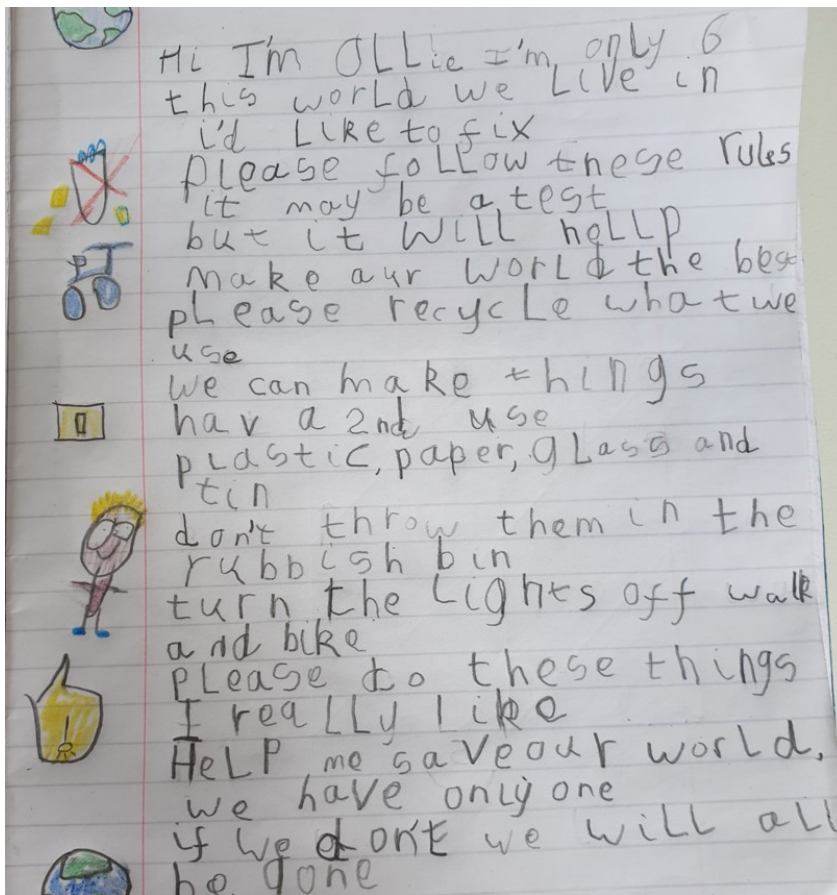 Hi I'm OLLie I'm only 6
this world we Live in
i'd Like to fix
please follow these rules
it may be a test
but it will hellp
make aur world the best
please recycle what we
use
we can make things
hav a 2nd use
plastic, paper, glass and
tin
don't throw them in the
rubbish bin
turn the Lights off walk
and bike
please do these things
I really like
HeLP me save our world,
we have only one
if we don't we will all
be gone